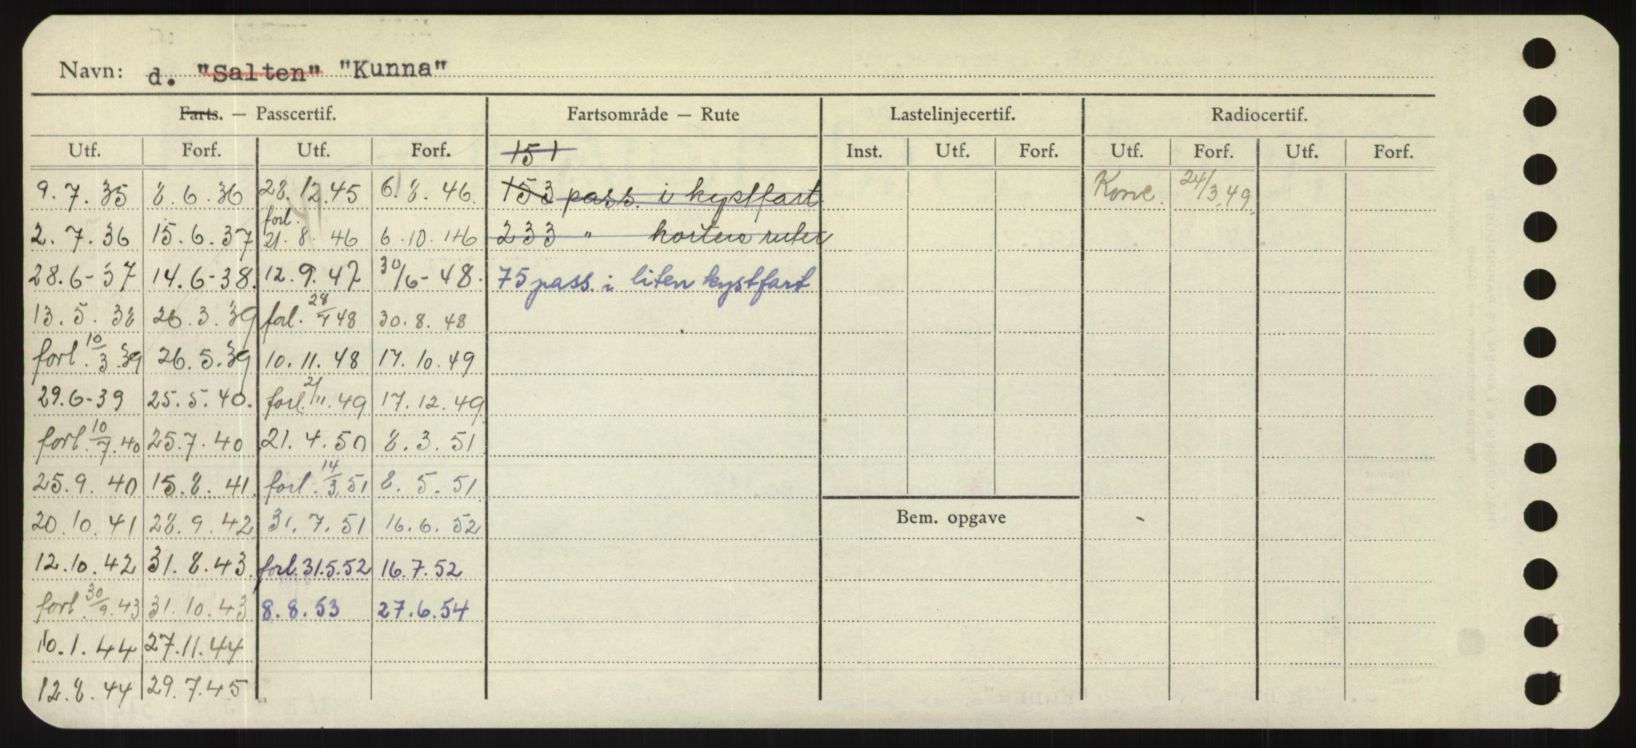 Navn: d. "Salten" "Kunna"
Farts. — Passcertif. Fartsområde — Rute Lastelinjecertif. Radiocertif.
Utf. Forf. Utf. Forf. 151 Inst. Utf. Forf. Utf. Forf. Utf. Forf.
9.7.35 8.6.36 28.12.45 6.8.46 153 pass. i kystfart 24/3.49
2.7.36 15.6.37 forl. 21.8.46 6.10.46 233 " kortere ruter
28.6-37 14.6-38. 12.9.47 30/6-48. 75 pass. i liten kystfart
13.5.38 26.3.39 forl. 28/7 48 30.8.48
forl. 10/3.39 26.5.39 10.11.48 17.10.49
29.6-39 25.5.40. forl. 21/11.49 17.12.49
forl. 10/7.40 25.7.40 21.4.50 8.3.51
25.9.40 15.8.41. forl. 14/3.51 8.5.51
20.10.41 28.9.42 31.7.51 16.6.52
Bem. opgave
12.10.42 31.8.43. forl. 31.5.52 16.7.52
forl. 30/9.43 31.10.43 8.8.53 27.6.54
10.1.44 27.11.44
12.8.44 29.7.45